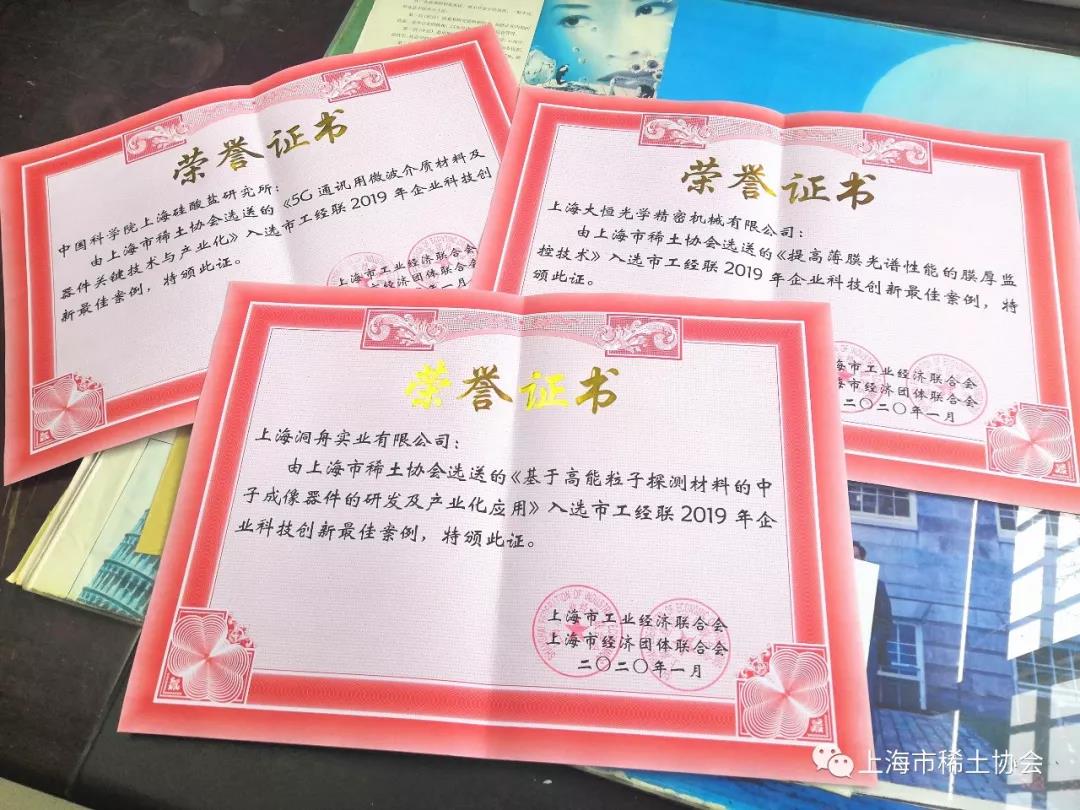 荣誉证书
中国科学院上海硅酸盐研究所：
由上海市稀土协会选送的《5G通讯用微波介质材料及
器件关键技术与产业化》入选市工经联2019年企业科技创
新最佳案例，特颁此证。
上海市工业经济联合会
经济团体联合会
一月
荣誉证书
上海大恒光学精密机械有限公司：
由上海市稀土协会选送的《提高薄膜光谱性能的膜厚监
控技术》入选市工经联2019年企业科技创新最佳案例，特
颁此证。
海市工业经济联合会
海市经济团体联合会
二〇二〇年一月
荣誉证书
上海洞舟实业有限公司：
由上海市稀土协会选送的《基于高能粒子探测材料的中
子成像器件的研发及产业化应用》入选市工经联2019年企
业科技创新最佳案例，特颁此证。
上海市工业经济联合会
上海市经济团体联合会
二〇二〇年一月
上海市稀土协会